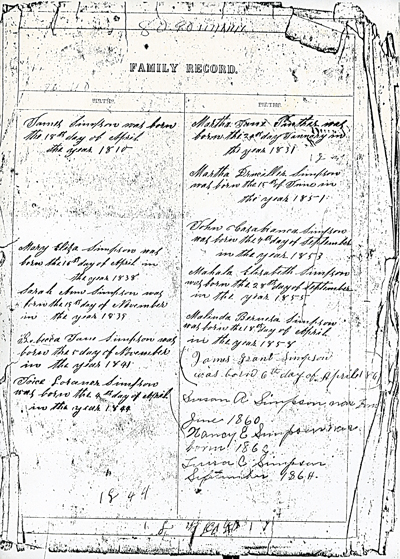 FAMILY RECORD.
BIRTHS.
BIRTHS.
James Simpson was born
the 18th day of April
the year 1810
Mary Eliza Simpson was
born the 18th day of April in
the year 1838
Sarah Ann Simpson was
born the 15th day of November
in the year 1839
Rebecca Jane Simpson was
born the day of November
in the year 1841
Joice Simpson
was born the 4th day of April
in the year 1844
1844
Martha Jane was
born the 29th day January in
the year 1831
Martha Simpson
was born the 15th of June in
the year 1851
John Casabianca Simpson
was born the 4th day of September
in the year 1853
Mahala Elizabeth Simpson
was born the 28th day of September
in the year 1855
Malinda Simpson
was born the 18th day of April
in the year 1858
James Grant Simpson
was born 6th day of April 186
Susan A Simpson was
June 1860
Nancy E Simpson was
born 1862
C Simpson
September 1864.